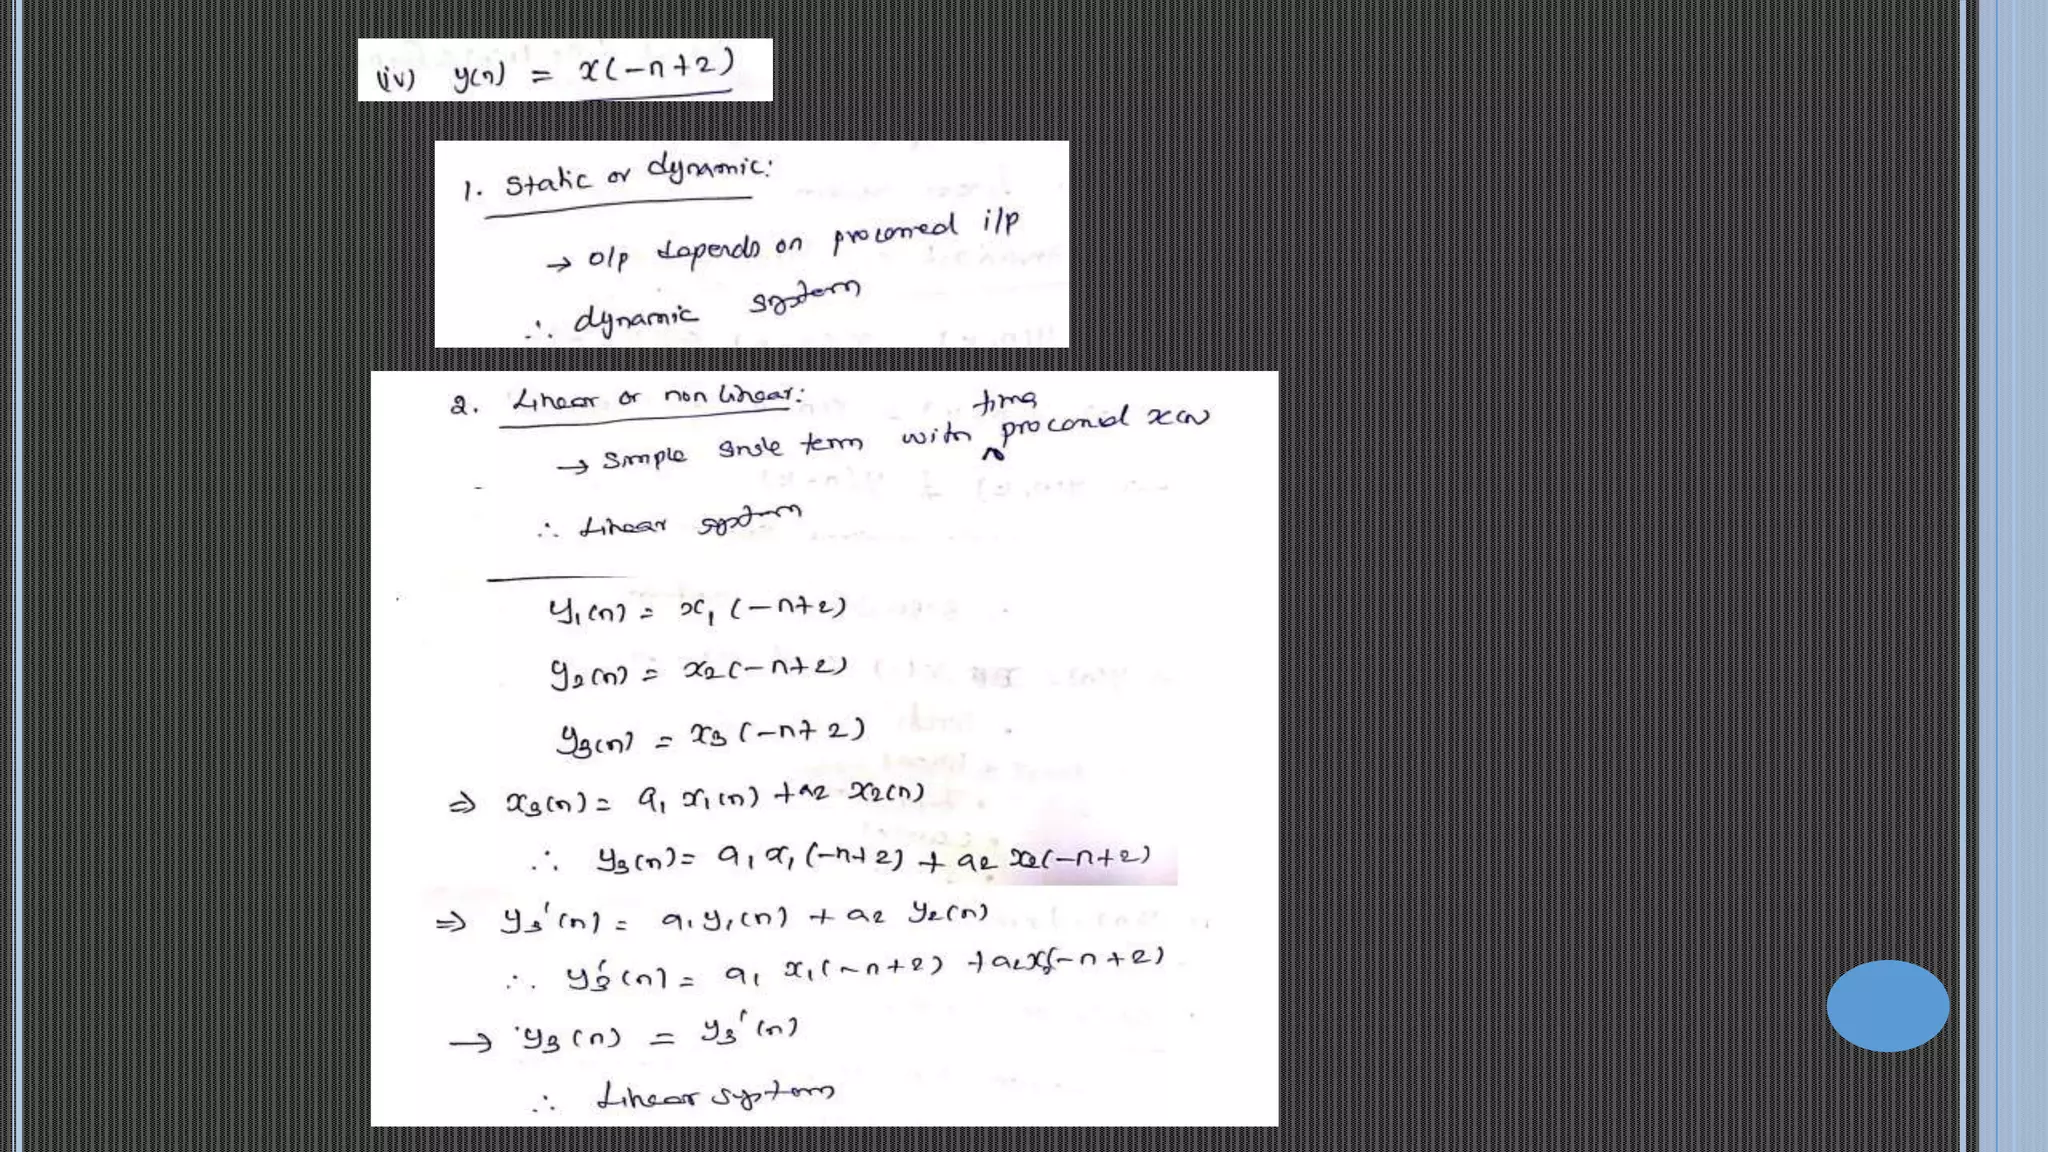 (iv) y(n) = x(-n+2)
1. Static or dynamic:
→ o/p depends on processed i/p
∴ dynamic system
2. Linear or non linear:
time
→ Simple single term with processed x(n)
∴ Linear system
y₁(n) = x₁(-n+2)
y₂(n) = x₂(-n+2)
y₃(n) = x₃(-n+2)
⇒ x₃(n) = a₁ x₁(n) + a₂ x₂(n)
∴ y₃(n) = a₁ x₁(-n+2) + a₂ x₂(-n+2)
⇒ y₃'(n) = a₁ y₁(n) + a₂ y₂(n)
∴ y₃'(n) = a₁ x₁(-n+2) + a₂ x₂(-n+2)
→ y₃(n) = y₃'(n)
∴ Linear system